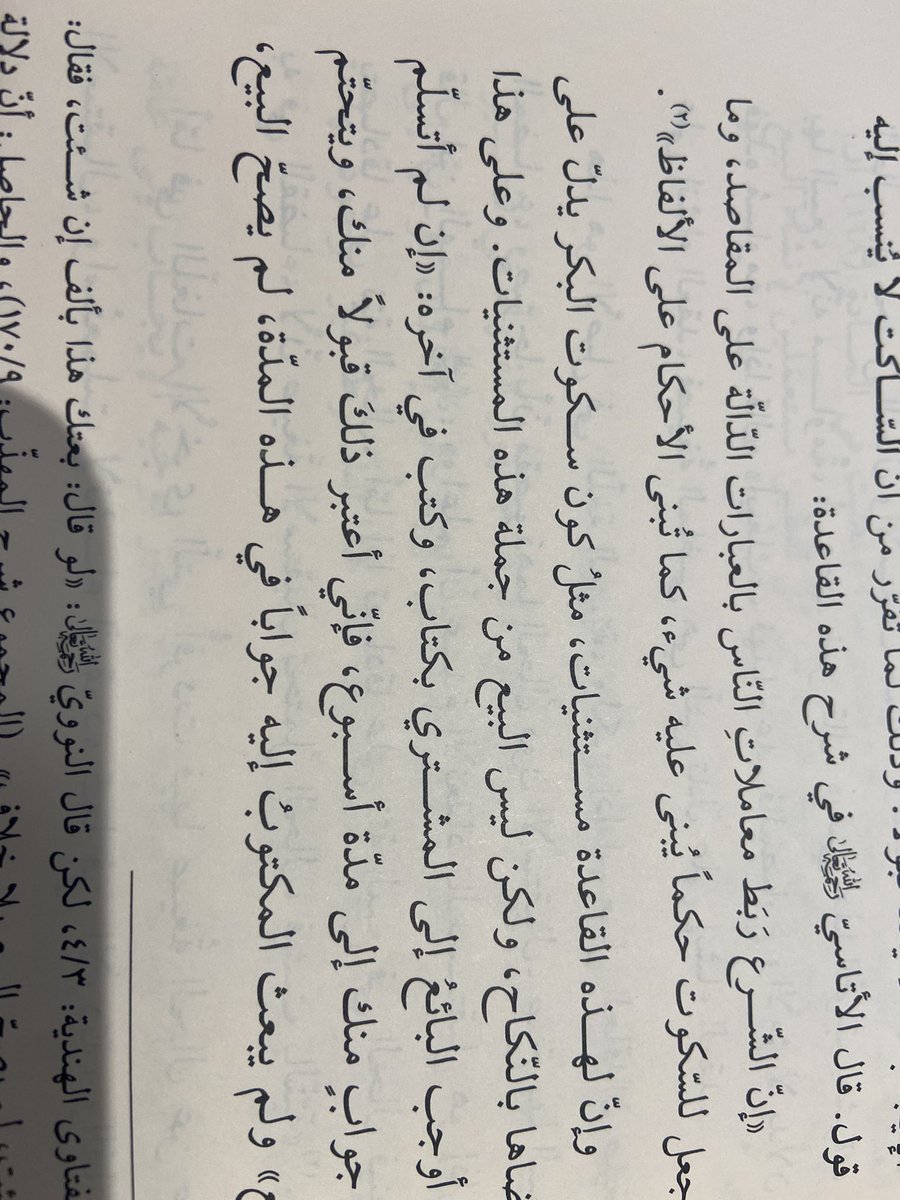 وذلك لما تقرّر من أنّ السّاكت لا يُنسب إليه
قول. قال الأتاسيّ ﵀ في شرح هذه القاعدة:
«إنّ الشّرع رَبَط معاملاتِ النّاس بالعبارات الدّالّة على المقاصد، وما
جعل للسّكوت حكماً يُبنى عليه شيء، كما تُبنى الأحكام على الألفاظ»(٢).
وإنّ لهذه القاعدة مستثنيات، مثلُ كون سكوت البكر يدلّ على
ضاها بالنّكاح، ولكن ليس البيع من جملة هذه المستثنيات. وعلى هذا
أوجب البائعُ إلى المشتري بكتاب، وكتب في آخره: «إن لم أتسلّم
جوابٍ منك إلى مدّة أسبوع، فإنّي أعتبر ذلكَ قبولاً منك، ويتحتّم
ع» ولم يبعث المكتوبُ إليه جواباً في هذه المدّة، لم يصحّ البيع،
فتاوى الهندية: ٤/٣، لكن قال النوويّ ﵀: «لو قال: بعتك هذا بألف إن شئت، فقال:
بلا خلاف» (المجموع شرح المهذّب: ١٧٠/٩)، والحاصل: أنّ دلالة